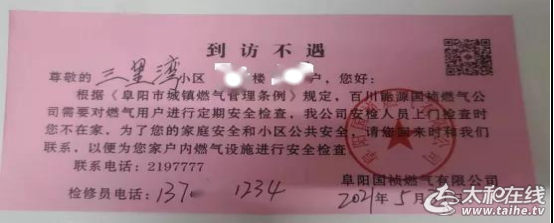 到访不遇
尊敬的 三里湾 小区 楼 户，您好：
根据《阜阳市城镇燃气管理条例》规定，百川能源国祯燃气公
司需要对燃气用户进行定期安全检查，我公司安检人员上门检查时
您不在家，为了您的家庭安全和小区公共安全，请您回来时和我们
联系，以便为您家户内燃气设施进行安全检查
联系电话：2197777
检修员电话：137 1234
阜阳国祯燃气有限公司
2021年5月
太和在线
www.taihe.tv